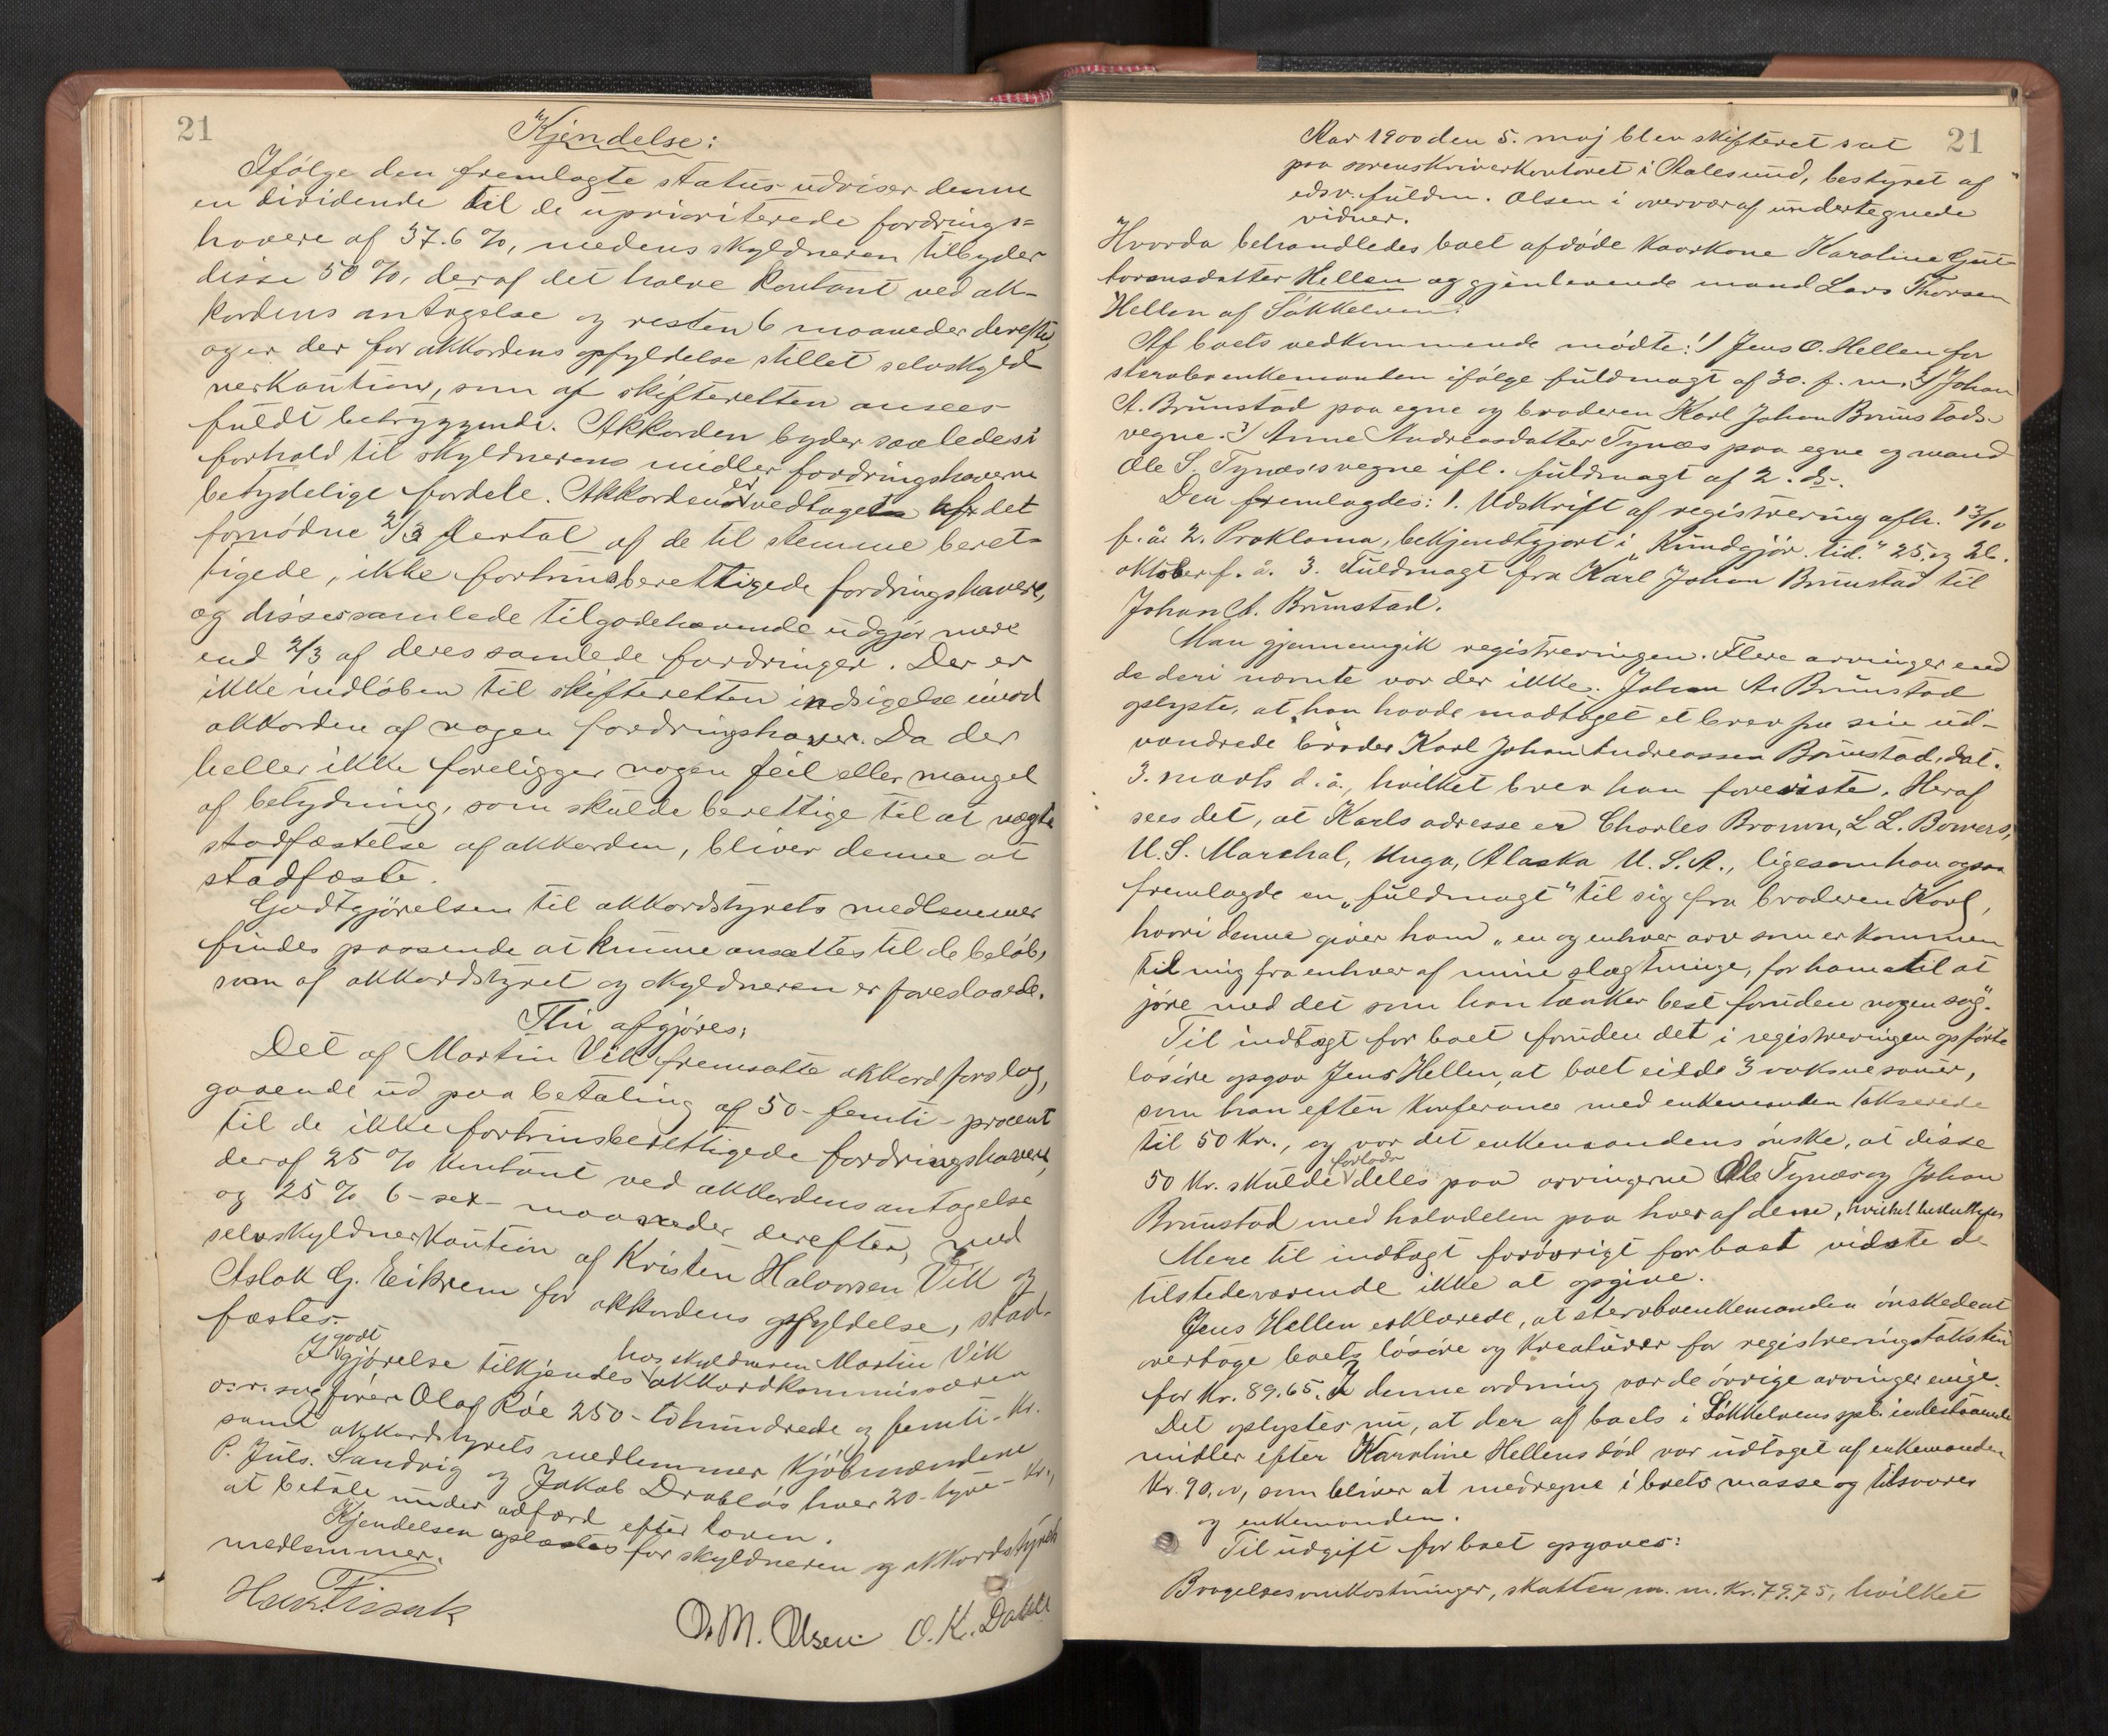 21
Kjendelse:
Ifølge den fremlagte status udviser denne
en dividende til de uprioriterede fordrings=
havere af 37.6 %, medens skyldneren tilbyder
disse 50 %, deraf det halve kontant ved ak-
kordens antagelse og resten 6 maaneder derefter
og er der for akkordens opfyldelse stillet selvskyld-
nerkaution, som af skifteretten ansees
fuldt betryggende. Akkorden byder saaledes i
forhold til skyldnerens midler fordringshaverne
betydelige fordele. Akkorden er vedtaget af det
fornødne 2/3 flertal af de til stemme beret-
tigede, ikke fortrinsberettigede fordringshavere,
og disses samlede tilgodehavende udgjør mere
end 2/3 af deres samlede fordringer. Der er
ikke indløben til skifteretten indsigelse imod
akkorden af nogen fordringshaver. Da der
heller ikke foreligger nogen feil eller mangel
af betydning, som skulde berettige til at negte
stadfæstelse af akkorden, bliver denne at
stadfæste.
Godtgjørelsen til akkordstyrets medlemmer
findes passende at kunne ansættes til de beløb,
som af akkordstyret og skyldneren er foreslaaede.
Thi afgjøres:
Det af Martin Vik fremsatte akkordforslag,
gaaende ud paa betaling af 50 - femti - procent
til de ikke fortrinsberettigede fordringshavere,
deraf 25 % kontant ved akkordens antagelse
og 25 % 6 - sex - maaneder derefter, med
selvskyldnerkaution af Kristen Halvorsen Vik og
Aslak G. Eikrem for akkordens opfyldelse, stad-
fæstes.
I godtgjørelse tilkjendes hos skyldneren Martin Vik akkordkommissæren
o.r.sagfører Olaf Røe 250 - tohundrede og femti - kr.
samt akkordstyrets medlemmer kjøbmændene
P. Juls. Sandvig og Jakob Drabløs hver 20 - tyve - kr.,
at betale under adfærd efter loven.
Kjendelsen oplæstes for skyldneren og akkordstyrets
medlemmer.
O. M. Olsen O. K. Dahle
21
Aar 1900 den 5. maj blev skifteret sat
paa sorenskriverkontoret i Aalesund, bestyret af
edsv. fuldm. Olsen i overvær af undertegnede
vidner.
Hvorda behandledes boet afdøde kaarkone Karoline Gut-
tormsdatter Hellen og gjenlevende mand Lars Thorsen
Hellen af Søkkelven.
Af boets vedkommende mødte: 1) Jens O. Hellen for
stervboenkemanden ifølge fuldmagt af 30. f. m. 2) Johan
A. Brunstad paa egne og broderen Karl Johan Brunstads
vegne. 3) Anne Andreasdatter Tynæs paa egne og mand
Ole S. Tynæs's vegne ifl. fuldmagt af 2. ds.
Der fremlagdes: 1. Udskrift af registrering afh. 13/10
f. å. 2. Proklama, bekjendtgjort i „Kundgjør. tid." 25. og 26.
oktober f. å. 3. Fuldmagt fra Karl Johan Brunstad til
Johan A. Brunstad.
Man gjennemgik registreringen. Flere arvinger end
de deri nævnte var der ikke. Johan A. Brunstad
oplyste, at han havde modtaget et brev fra sin ud-
vandrede broder Karl Johan Andreassen Brunstad, dat.
3. marts d. å., hvilket brev han foreviste. Heraf
sees det, at Karls adresse er Charles Brown, L L. Bowers,
U. S. Marchal, Unga, Alaska U. S. A., ligesom han ogsaa
fremlagde en „fuldmagt" til sig fra broderen Karl,
hvori denne giver ham „en og enhver arv som er kommen
til mig fra enhver af mine slægtninge, for ham til at
jøre med det som han tænker best foruden nogen sag".
Til indtægt for boet foruden det i registreringen opførte
løsøre opgav Jens Hellen, at boet eiede 3 voksne sauer,
som han efter konferance med enkemanden takserede
til 50 kr., og var det enkemandens ønske, at disse
50 kr. skulde forlods deles paa arvingerne Ole Tynæs og Johan
Brunstad med halvdelen paa hver af dem, hvilket besluttedes
Mere til indtægt forøvrigt for boet vidste de
tilstedeværende ikke at opgive.
Jens Hellen erklærede, at stervboenkemanden ønskede at
overtage boets løsøre og kreaturer for registreringstaksten
for kr. 89.65. I denne ordning var de øvrige arvinger enige.
Det oplystes nu, at der af boets i Søkkelvens spb. indestaaende
midler efter Karoline Hellens død var udtaget af enkemanden
kr. 90,00, som bliver at medregne i boets masse og tilsvares
og enkemanden.
Til udgift for boet opgaves:
Begravelsesomkostninger, skatten m. m. kr. 79.75, hvilket